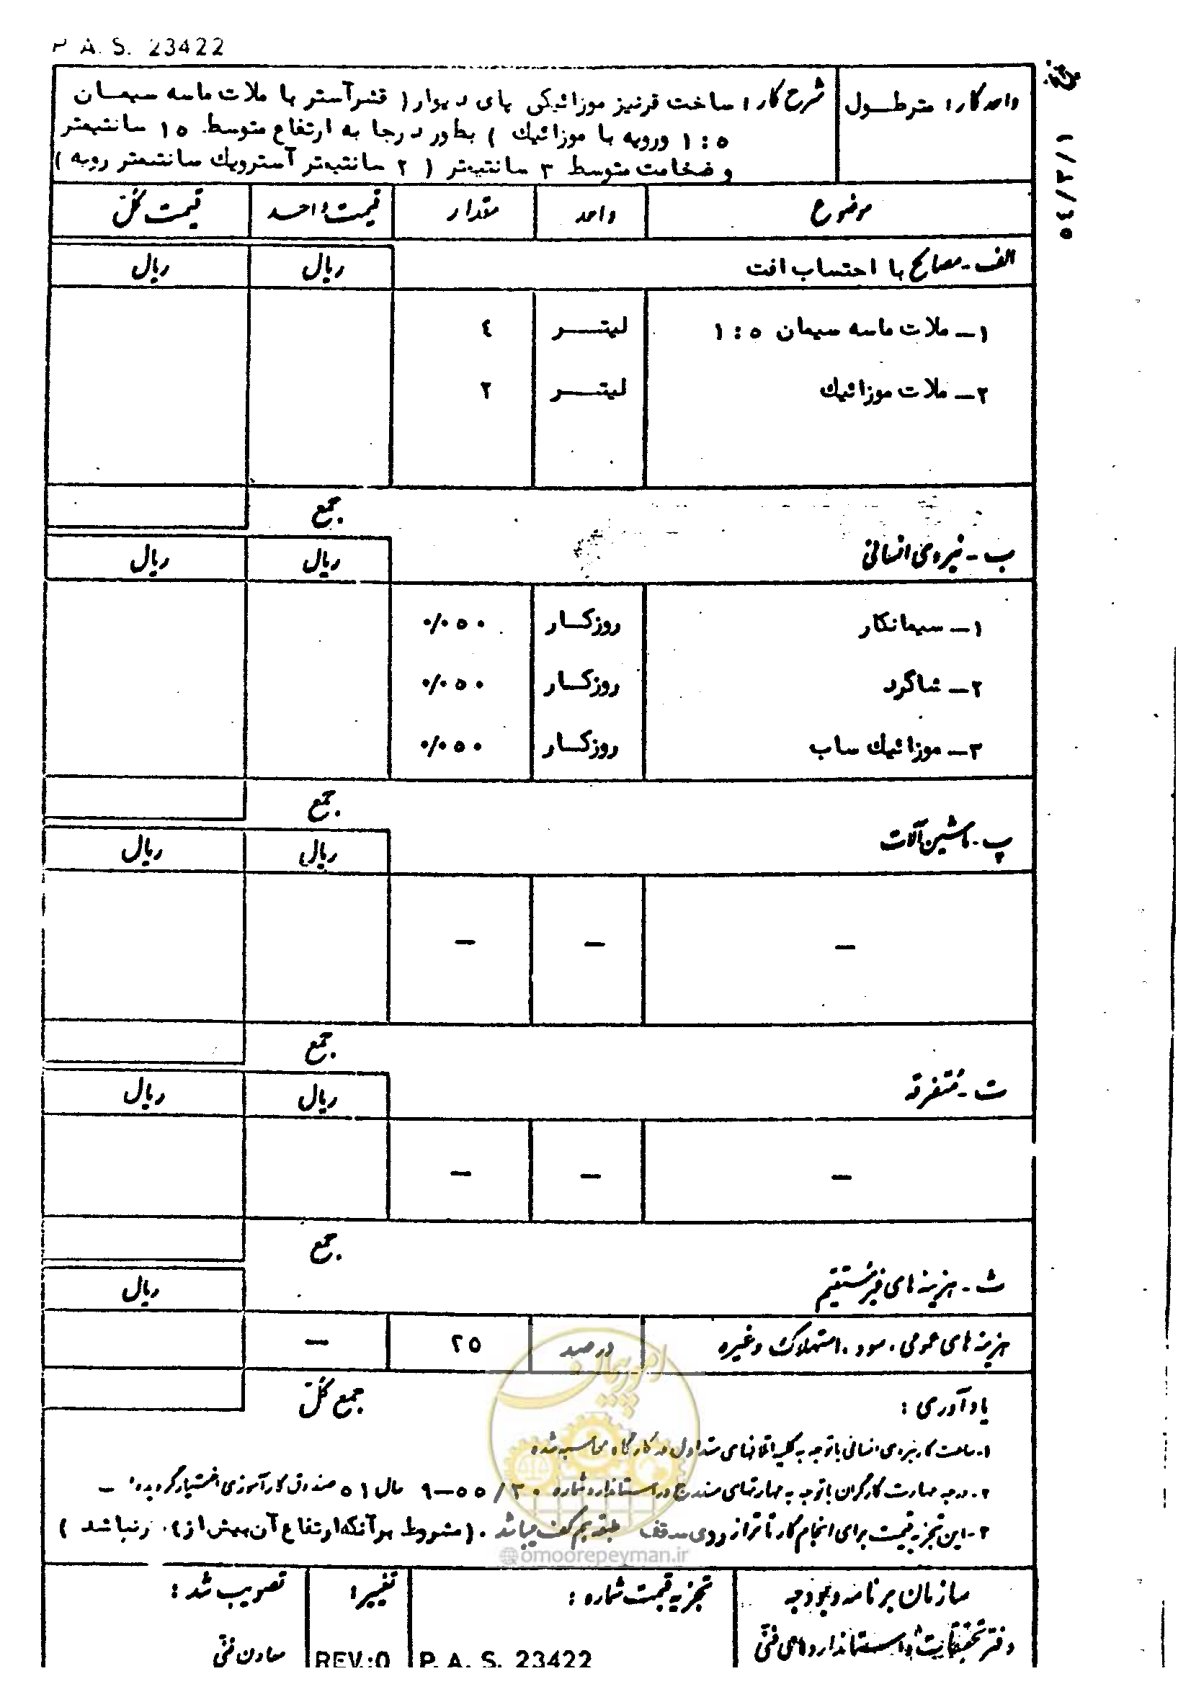 P. A. S. 23422
واحد کار: متر طول
شرح کار: ساخت قرنیز موزائیکی پای دیوار (قشر آستر با ملات ماسه سیمان
۱:۵ و رویه با موزائیک) بطور درجا به ارتفاع متوسط ۱۵ سانتیمتر
و ضخامت متوسط ۳ سانتیمتر (۲ سانتیمتر آستر و یک سانتیمتر رویه)
۵۴/۲/۱
موضوع واحد مقدار قیمت واحد قیمت کل
الف - مصالح با احتساب افت ریال ریال
۱ـ ملات ماسه سیمان ۱:۵ لیتــر ٤
۲ـ ملات موزائیک لیتــر ۲
جمع
ب - نیروی انسانی ریال ریال
۱ـ سیمانکار روزکــار ۰/۰۵۰
۲ـ شاگرد روزکــار ۰/۰۵۰
۳ـ موزائیک ساب روزکــار ۰/۰۵۰
جمع
پ - ماشین آلات ریال ریال
— — —
جمع
ت - متفرقه ریال ریال
— — —
جمع
ث - هزینه های غیر مستقیم ریال
هزینه های عمومی، سود، استهلاک و غیره درصد ۲۵ —
جمع کل
یادآوری:
۱- ساعت کار نیروی انسانی با توجه به کلیه اتلافهای متداول در کارگاه محاسبه شده
۲- درجه مهارت کارگران با توجه به مهارتهای مندرج در استاندارد شماره ۳۰/۵۵-۹ سال ۵۱ صندوق کارآموزی اختیار گردیده. —
۳- این تجزیه قیمت برای انجام کار تا تراز روی سقف طبقه همکف میباشد. (مشروط بر آنکه ارتفاع آن بیش از ۴٫۰ نباشد)
امور پیمان
@omoorepeyman.ir
سازمان برنامه و بودجه
دفتر تحقیقات و استانداردهای فنی
تجزیه قیمت شماره:
P. A. S. 23422
تغییر:
REV.:0
تصویب شد:
معاون فنی